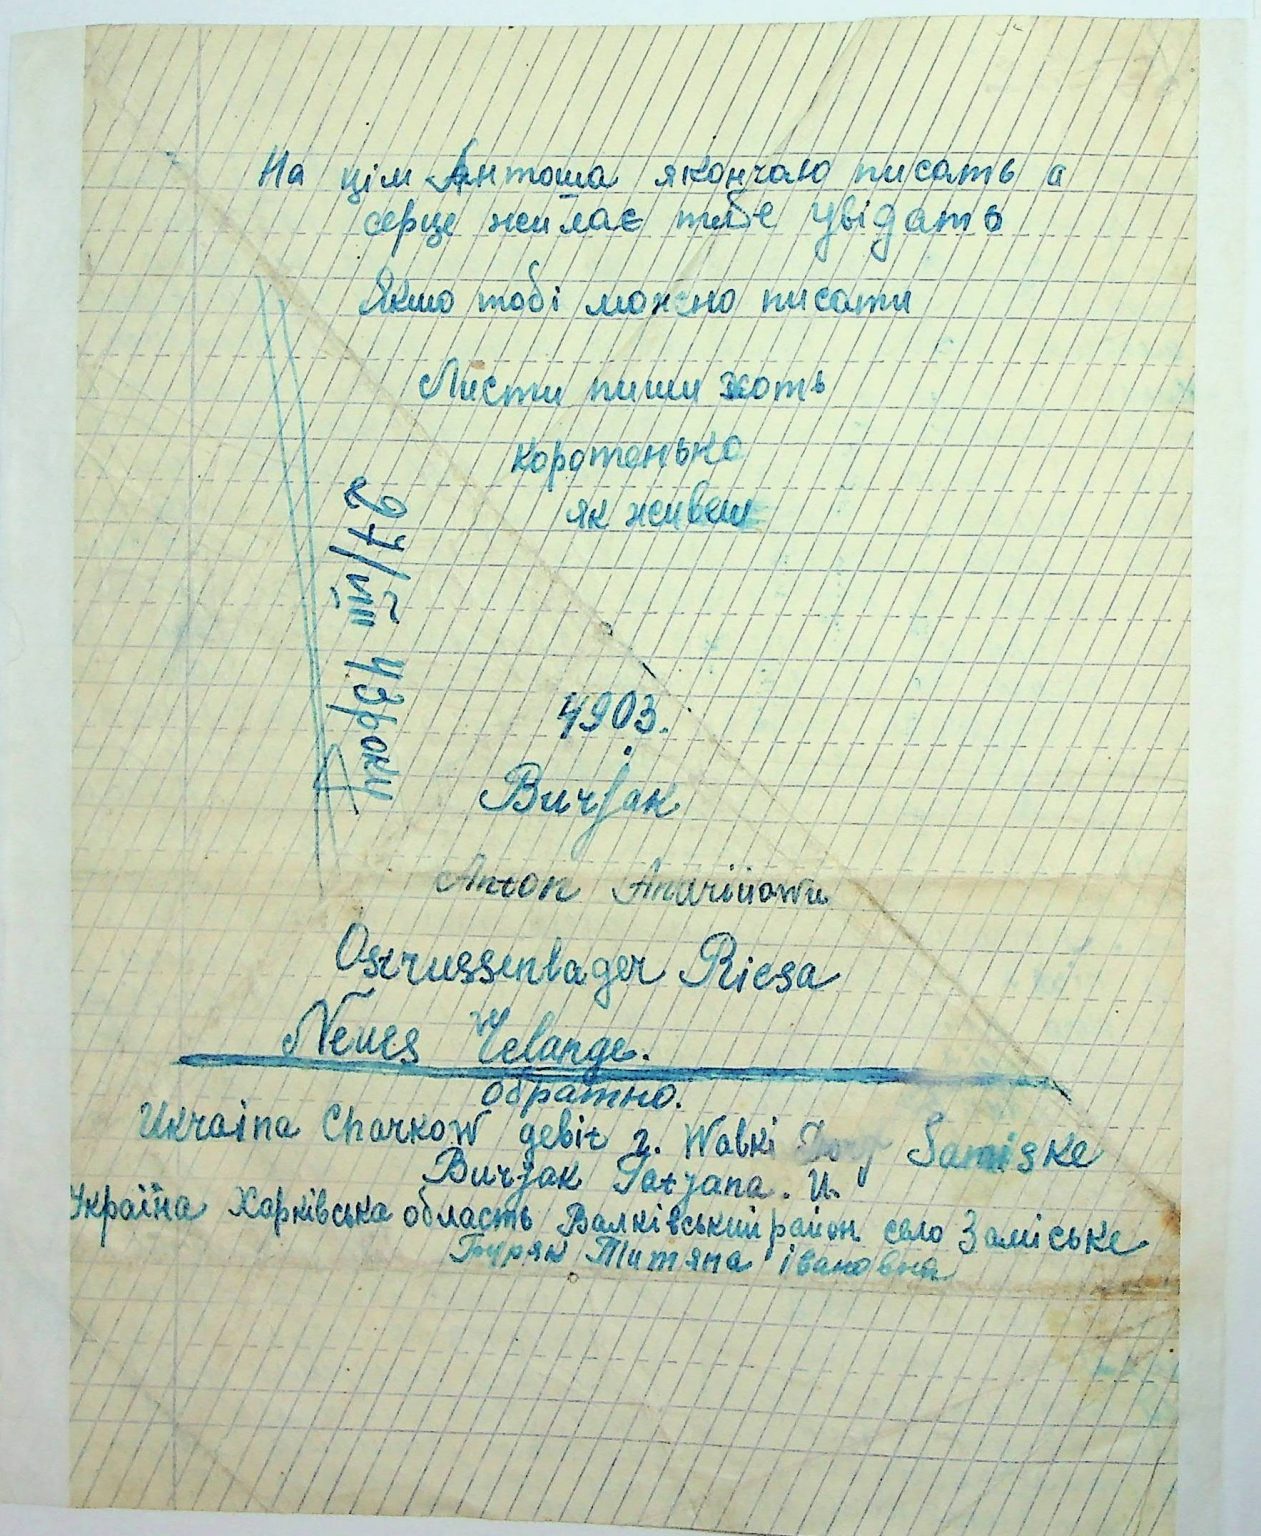 На цім Антоша якончаю писать а
серце жилає тибе увідать
Якшо тобі можно писати
Листи пиши хоть
коротенько
як живеш
27/VIII 43 року
4903.
Burjak
Anton Andriiowu
Ostrussenlager Riesa
Neues Gelange.
обратно.
Ukraina Charkow gebit r. Walki Dorf Samiske
Burjak Tatjana. U.
Україна Харківська область Валківський район село Заміське
Буряк Титяна івановна